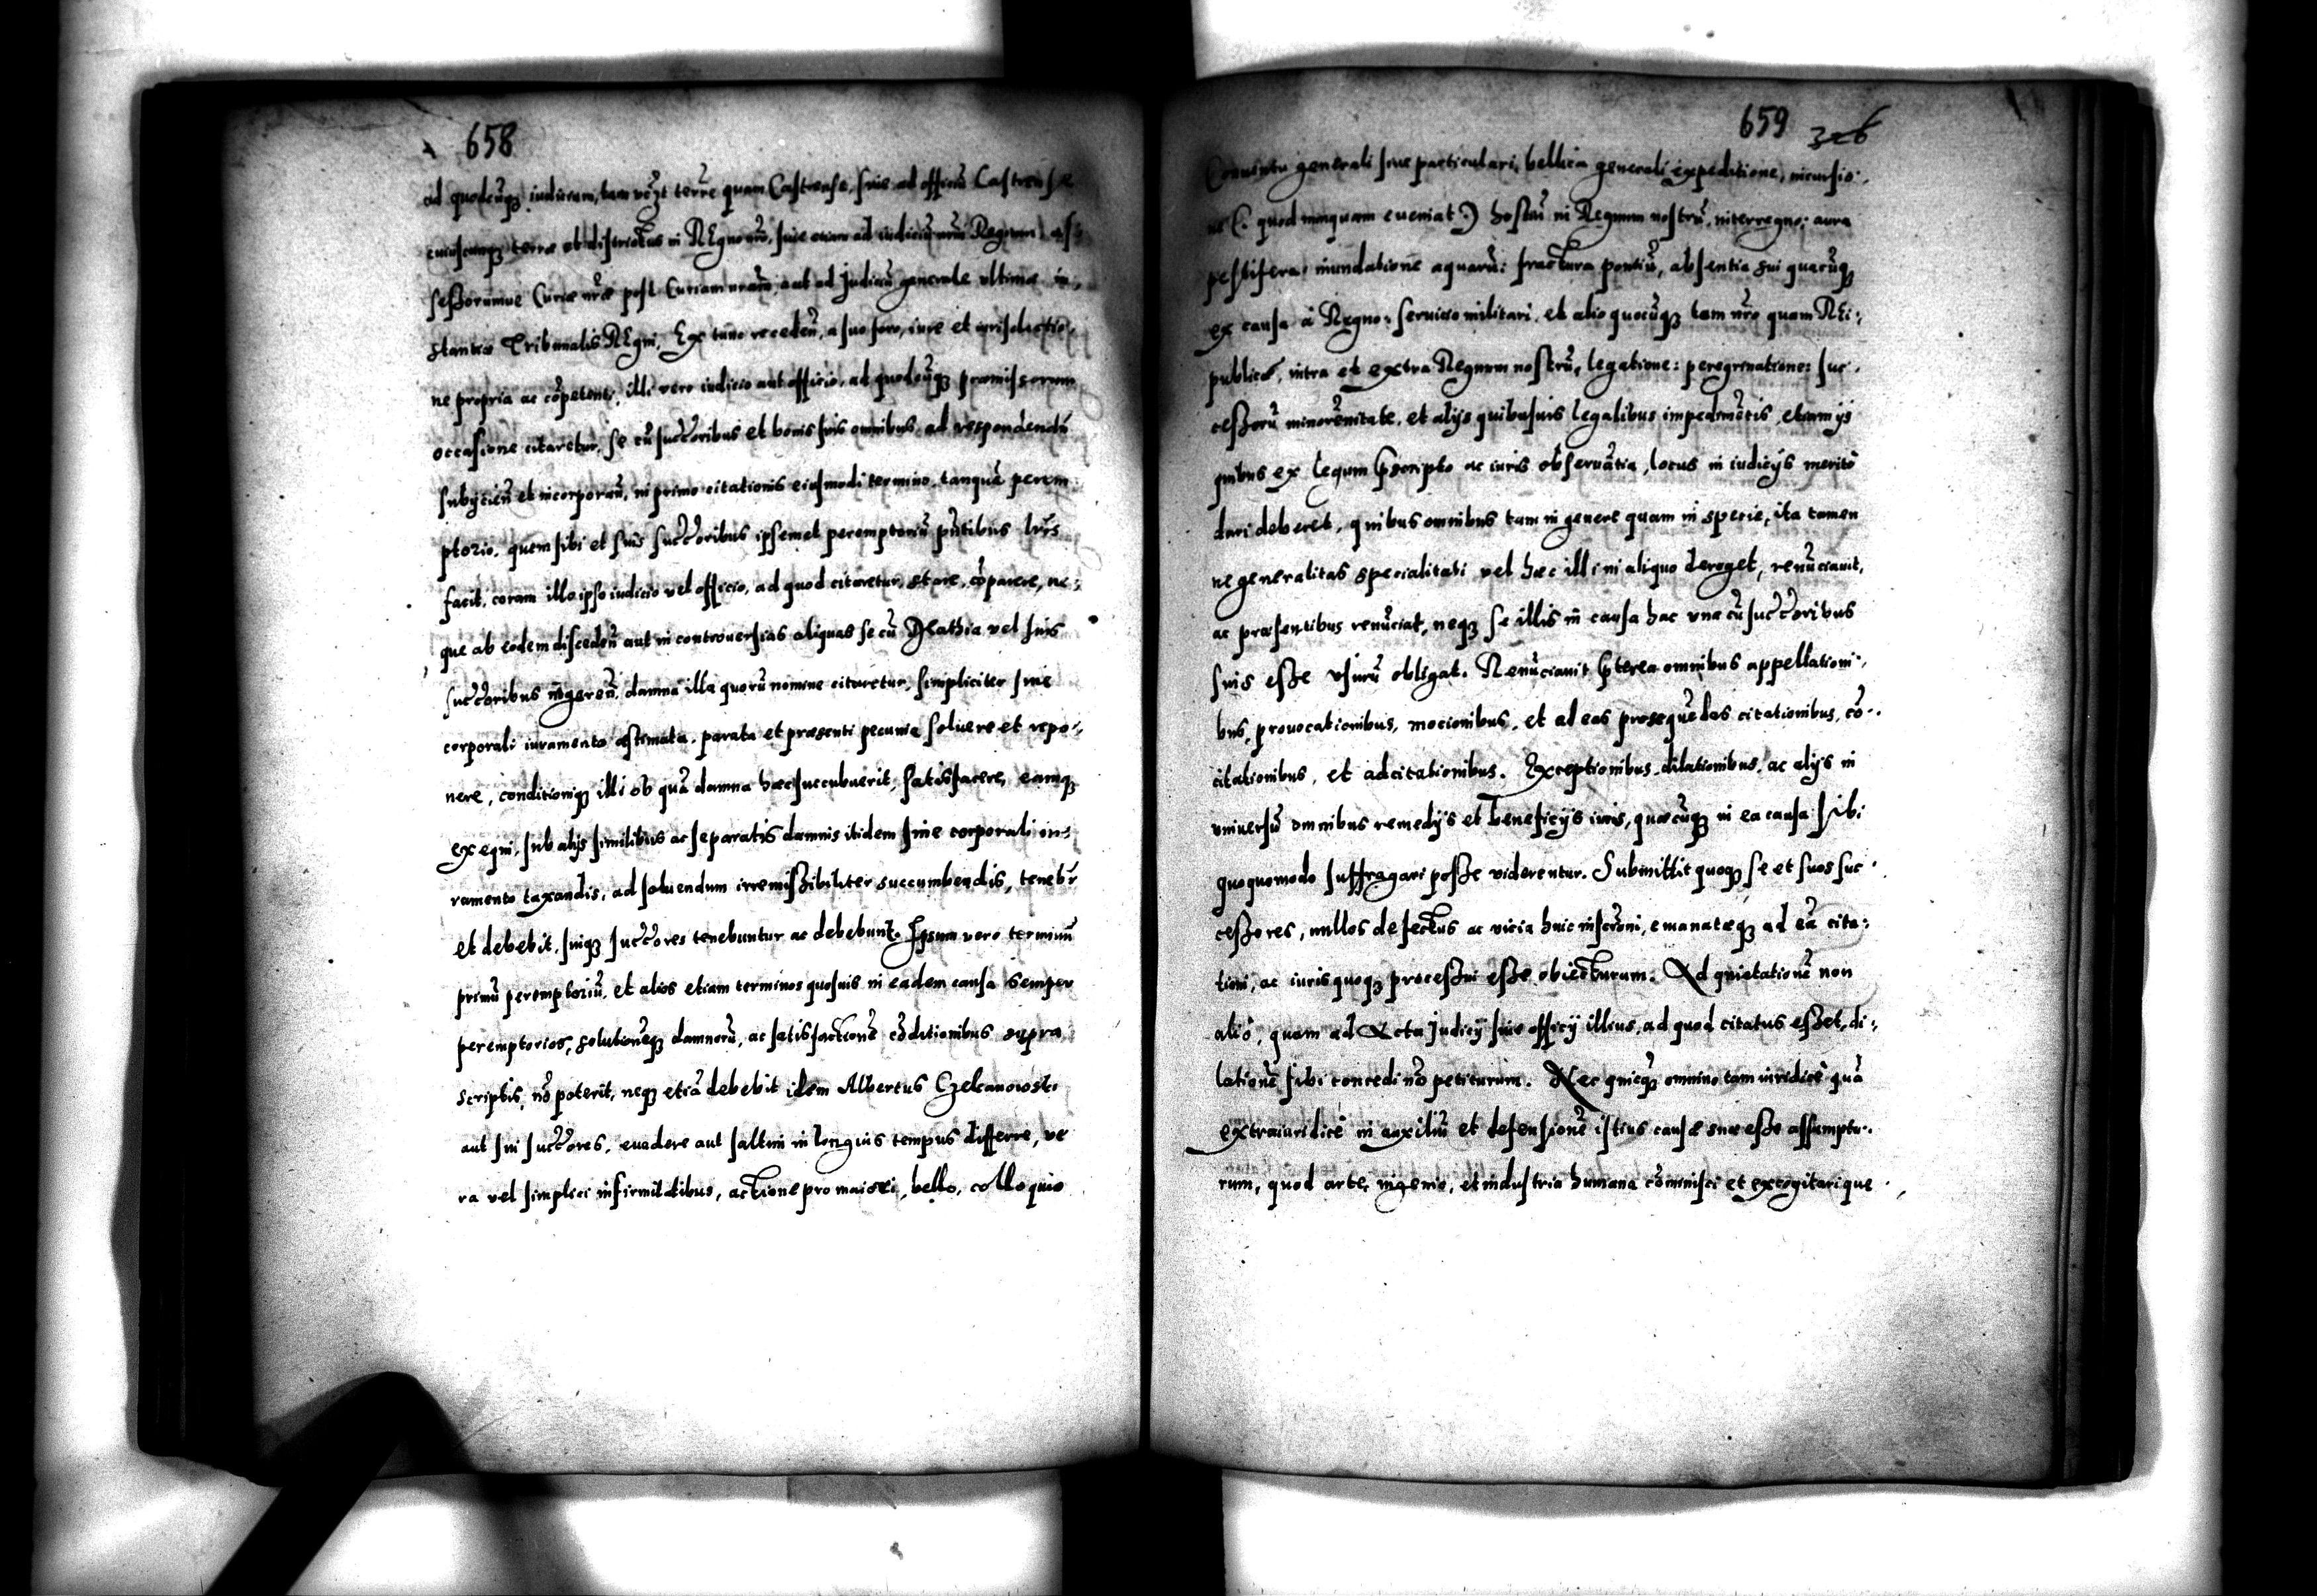 658
ad quodcūq; iudicium, tam vezt terre quam Castrense, siue ad officiū Castrense
cuiuscunq; terræ ob districtus in REgno nrō, siue etiam ad iudiciū nrūm Regium as:
seßorumue Curiæ nrǣ post Curiam nrām, aut ad Judiciū generale vltimæ in,
stantiæ Tribunalis REgni, Ex tunc recedeñ, a suo foro, iure et iurisdictio,
ne propria ac cōpetenti, illi vero iudicio aut officio, ad quodcūq; præmissorum
occasione citaretur, se cū succ̄oribus et bonis suis omnibus ad respondendū
subycieñ et incorporañ, in primo citationis eiusmodi termino, tanquā perem
ptorio, quem sibi et suis succ̄oribus ipsemet peremptoriū pn̄tibus lrīs
facit, coram illo ipso iudicio vel officio, ad quod citaretur, stare, cōparere, ne:
que ab eodem discedeñ aut in controuersias aliquas se cū Mathia vel suis
succ̄oribus īgereñ, damna illa quorū nomine citaretur, simpliciter sine
corporali iuramento æstimata, parata et præsenti pecunia soluere et repo:
nere, conditioniq; illi ob quā damna hæc succubuerit, satisfacere, eamq;
exequi, sub alijs similibus ac separatis damnis itidem sine corporali iu:
ramento taxandis, ad soluendum irremißibiliter succumbendis, tenebr̄
et debebit, suiq; succ̄ores tenebuntur ac debebunt. Ipsum vero terminū
primū peremptoriū, et alios etiam terminos quosuis in eadem causa semper
peremptorios, solutionēq; damnorū, ac satisfactionē cōditionibus supra
scriptis, nō poterit, neq; etiā debebit idem Albertus Czelcanowski
aut sui succ̄ores, euadere aut saltim in longius tempus differre, ve
ra vel simplici infirmitatibus, actione pro maiori, bello, colloquio
659 326
Conuentu generali siue particulari, bellica generali expeditione, incursio:
ne (: quod nunquam eueniat :) hostiū in Regnum nostrū, interregno: aura
pestifera: inundatione aquarū: fractura pontiū, absentia sui quacūq;
ex causa à Regno: seruicio militari, et alio quocūq; tam nrō quam REi:
publicæ, intra et extra Regnum nostrū, legatione: peregrinatione: suc:
ceßorū minorēnitate, et alijs quibusuis legalibus impedimētis, etiam ijs
quibus ex legum p̄scripto ac iuris obseruātia, locus in iudicijs meritò
dari deberet, quibus omnibus tam in genere quam in specie, ita tamen
ne generalitas specialitati vel hæc illi in aliquo deroget, renūciauit,
ac præsentibus renūciat, neq; se illis in causa hac vna cū succ̄oribus
suis eße vsurū obligat. Renūciauit p̄terea omnibus appellationi:
bus, prouocationibus, mocionibus, et ad eas prosequēdas citationibus, cō:
citationibus, et adcitationibus. Exceptionibus, dilationibus, ac alijs in
vniuersū omnibus remedijs et beneficijs iuris, quæcūq; in ea causa sibi
quoquomodo suffragari poße viderentur. Submittit quoq; se et suos suc
ceßores, nullos defectus ac vicia huic inscr̄oni, emanatæq; ad eā cita:
tioni, ac iuris quoq; proceßui eße obiecturum. Ad quietationē non
aliò, quam ad Acta Judicij siue officij illius, ad quod citatus eßet, di:
lationē sibi concedi nō petiturum. Nec quicq; omnino tam iuridicè quā
extraiuridicè in auxiliū et defensionē istius causæ suæ eße assumptu:
rum, quod arte, ingenio, et industria humana cōminisci et excogitari que